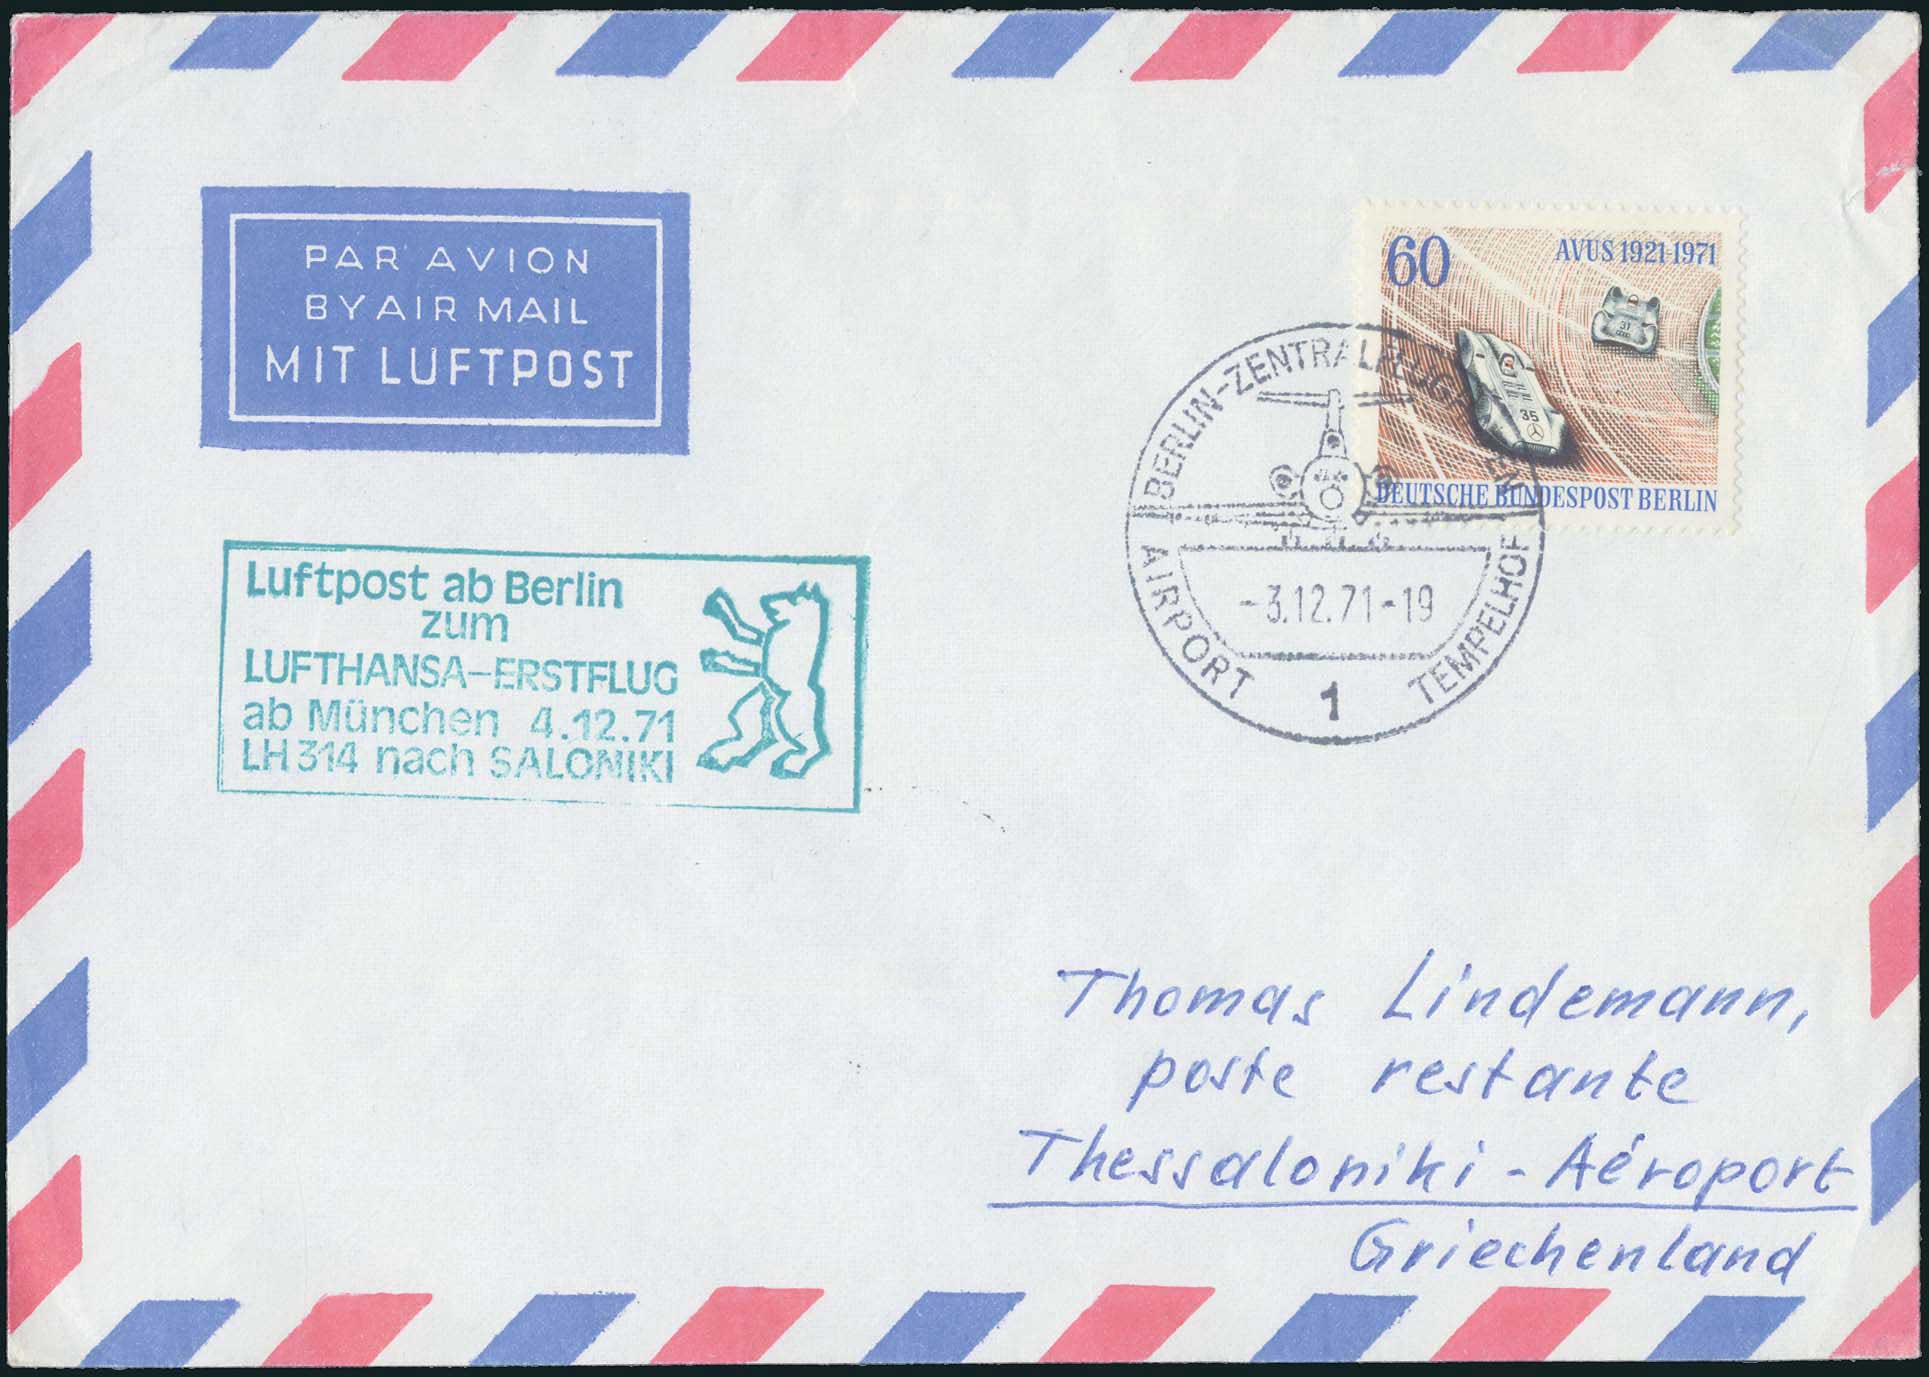 PAR AVION
BY AIR MAIL
MIT LUFTPOST
60
AVUS 1921-1971
31
35
DEUTSCHE BUNDESPOST BERLIN
BERLIN-ZENTRALFLUG
AIRPORT
TEMPELHOF
-3.12.71-19
1
Luftpost ab Berlin
zum
LUFTHANSA-ERSTFLUG
ab München 4.12.71
LH 314 nach SALONIKI
Thomas Lindemann,
poste restante
Thessaloniki - Aéroport
Griechenland